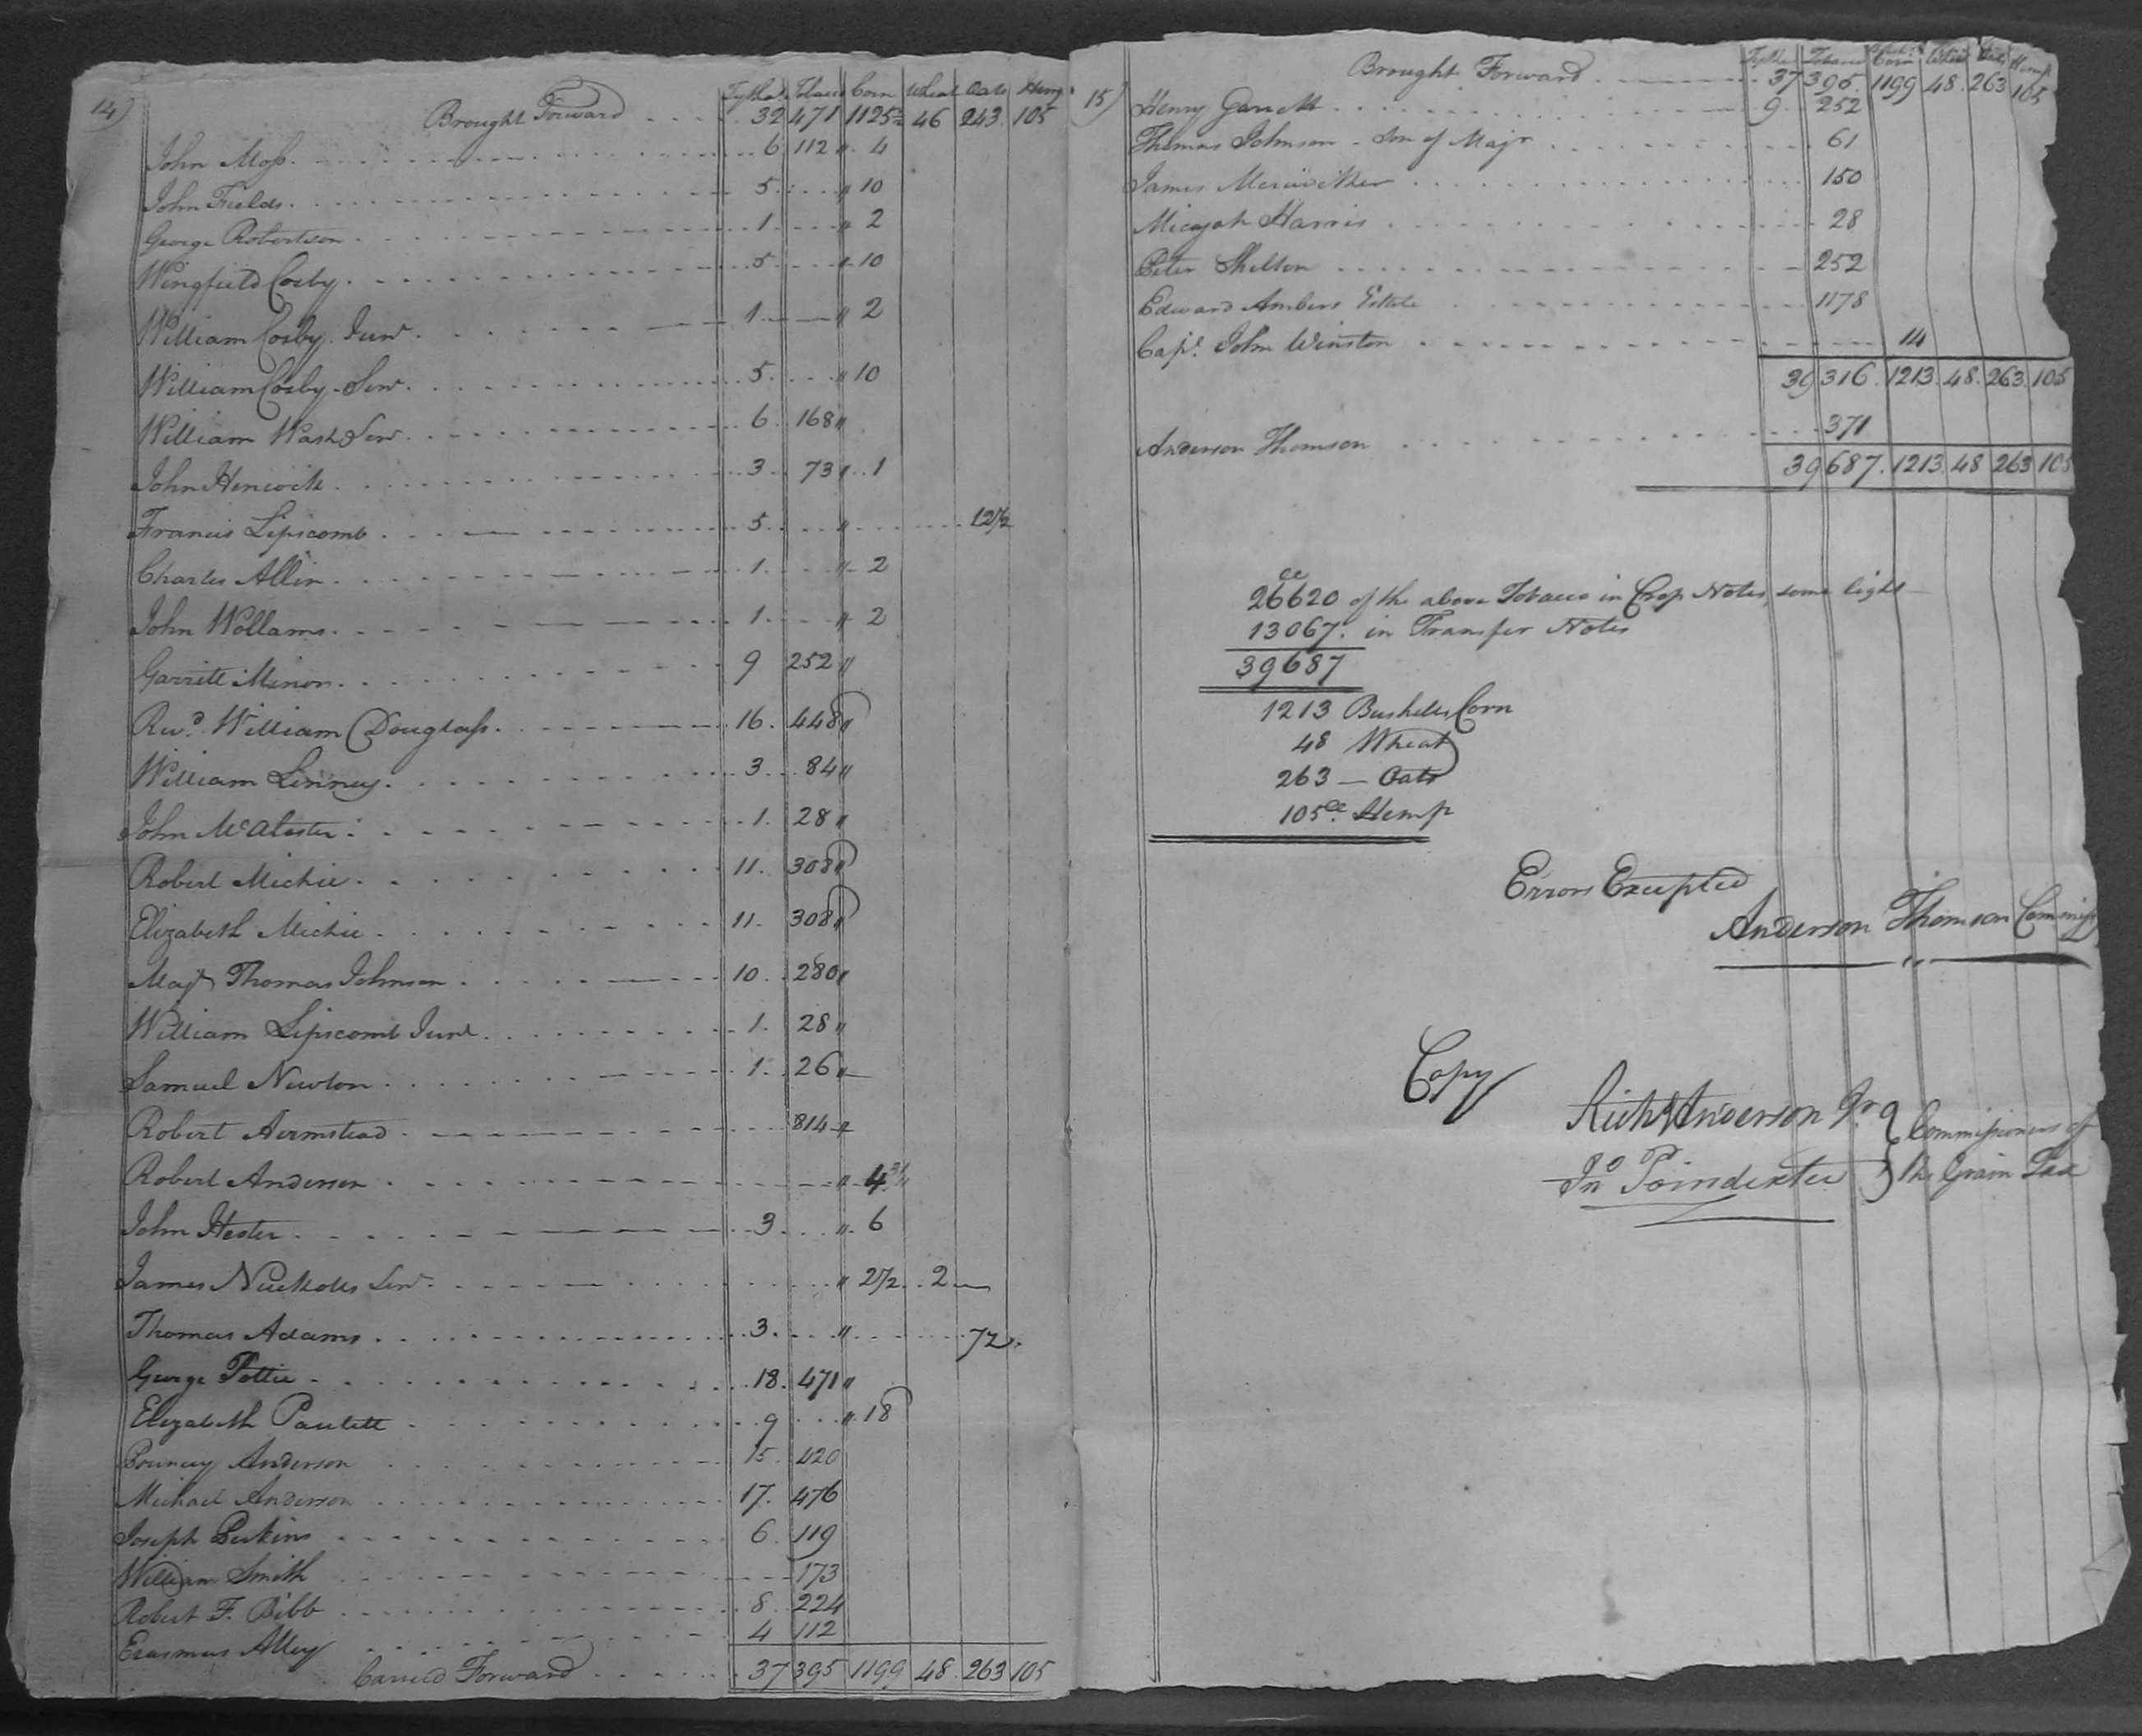 14) Tythe Tobacco Corn Wheat Oats Hemp
Brought Forward 32 471 1125 46 243 105
John Moss 6 112 " 4
John Fields 5 " 10
George Robertson 1 " 2
Wingfield Cosby 5 " 10
William Cosby Junr 1 " 2
William Cosby Senr 5 " 10
William Wash Senr 6 168 "
John Hencock 3 73 " 1
Francis Lipscomb 5 " 12 1/2
Charles Allin 1 " 2
John Wollams 1 " 2
Garritt Minor 9 252 "
Revd. William Douglass 16 448 "
William Linney 3 84 "
John McAlester 1 28 "
Robert Michie 11 308 "
Elizabeth Michie 11 308 "
Majr Thomas Johnson 10 280 "
William Lipscomb Junr 1 28 "
Samuel Newton 1 26 "
Robert Airmstead 814
Robert Anderson " 4
John Hester 3 " 6
James Nuckolls Senr " 2 1/2 2
Thomas Adams 3 " 7 1/2
George Pottie 18 471 "
Elizabeth Paulett 9 " 18
Pouncey Anderson 15 420
Michael Anderson 17 476
Joseph Perkins 6 119
William Smith 173
Robert F. Bibb 8 224
Erasmus Alley 4 112
Carried Forward 37 395 1199 48 263 105
15) Tythe Tobacco Corn Wheat Oats Hemp
Brought Forward 37 395 1199 48 263 105
Henry Garrett 9 252
Thomas Johnson - Son of Majr 61
James Meriwether 150
Micajah Harris 28
Peter Shelton 252
Edward Ambers Estate 1178
Capt. John Winston 14
39 316 1213 48 263 105
Anderson Thomson 371
39 687 1213 48 263 105
26620 of the above Tobacco in Crop Notes, some light
13067. in Transfer Notes
39687
1213 Bushells Corn
48 Wheat
263 — Oats
105 Hemp
Errors Excepted
Anderson Thomson Commissr
Copy
Richd Anderson Jr. } Commissioners of
Jno Poindexter } the Grain Tax